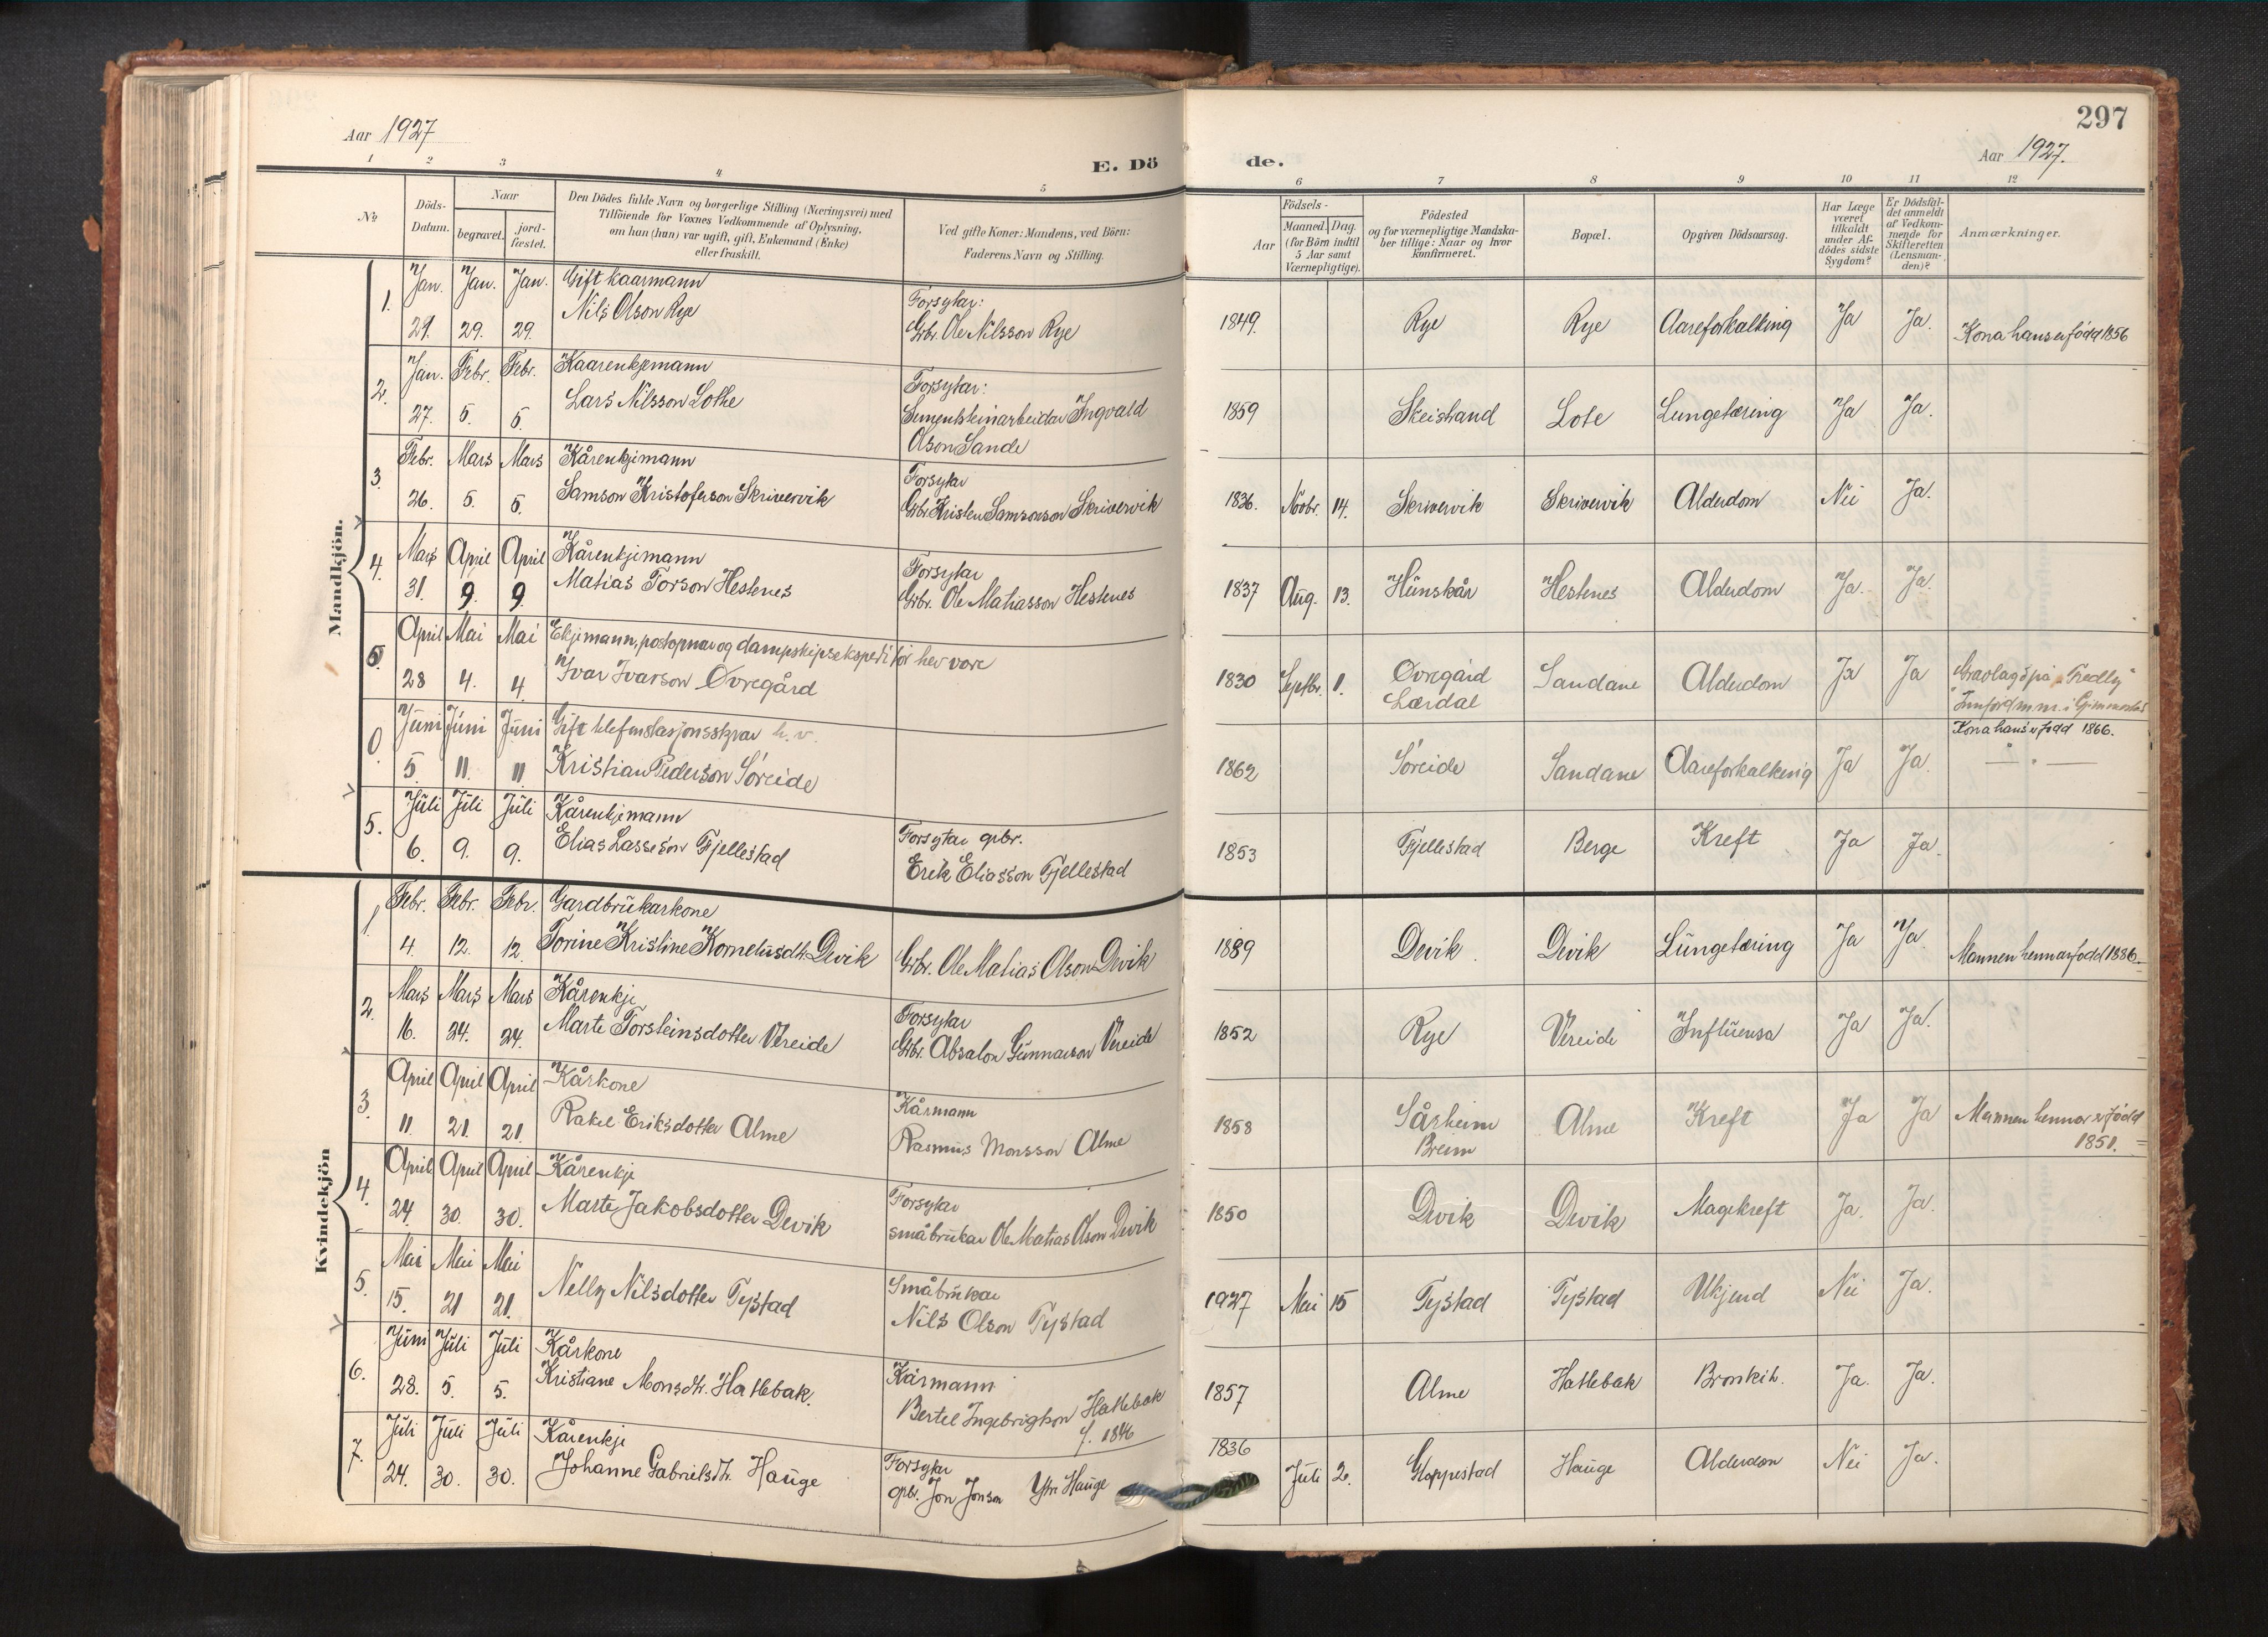 297
Aar 1927
Aar 1927.
E. Dö
de.
1 2 3 4 5
6 7 8 9 10 11 12
No
Döds-Datum.
Naar
begravet.
jord-fæstet.
Den Dödes fulde Navn og borgerlige Stilling (Næringsvei) med
Tilföiende for Voxnes Vedkommende af Oplysning,
om han (hun) var ugift, gift, Enkemand (Enke)
eller fraskilt.
Ved gifte Koner: Mandens, ved Börn:
Faderens Navn og Stilling.
Födsels-
Aar
Maaned. Dag.
(for Börn indtil
5 Aar samt
Værnepligtige).
Födested
og for værnepligtige Mandska-
ber tillige: Naar og hvor
konfirmeret.
Bopæl.
Opgiven Dödsaarsag.
Har Læge
været
tilkaldt
under Af-
dödes sidste
Sygdom?
Er Dödsfal-
det anmeldt
af Vedkom-
mende for
Skifteretten
(Lensman-
den)?
Anmærkninger.
Mandkjön.
1. Jan. Jan. Jan. Gift kaarmann
Forsytar:
29. 29. Nils Olson Rye
Grbr. Ole Nilsson Rye
1849. Rye Rye Aareforkalking Ja Ja. Kona hans er född 1856
2. Jan. Febr. Febr. Kaarenkjemann
Forsytar:
27. 5. 5. Lars Nilsson Lothe
Sementsteinarbeidar Ingvald
Olson Sande
1859 Skeistrand Lote Lungetæring Ja Ja.
3. Febr. Mars Mars Kårenkjemann
Forsytar
26. 5. 5. Samson Kristoferson Skrivervik
Grbr. Kristen Samsonson Skrivervik
1836. Novbr. 14. Skrivervik Skrivervik Alderdom Nei Ja.
4. Mars April April Kårenkjemann
Forsytar
31. 9. 9. Matias Torson Hestenes
Grbr. Ole Matiasson Hestenes
1837 Aug. 13. Hunskår Hestenes Alderdom Ja. Ja.
April Mai Mai Ekjemann, postopnar og dampskipsekspeditør hev vore
28 4. 4. Ivar Ivarson Øvregård
1830 Septbr. 1. Øvregård
Lærdal
Sandane Alderdom Ja Ja
Juni Juni Juni Gift telefonstasjonsstyrar h. v.
5. 11. 11 Kristian Pederson Søreide
1862 Søreide Sandane Aareforkalking Ja Ja.
Kona hans er född 1866.
5. Juli Juli Juli Kårenkjemann
Forsytar grbr.
6. 9. 9. Elias Lasseson Fjellestad
Erik Eliasson Fjellestad
1853 Fjellestad Berge Kreft Ja Ja.
Kvindekjön
1 Febr. Febr. Febr. Gardbrukarkone
4. 12. 12. Torine Kristine Kornelusdtr. Devik
Grbr. Ole Matias Olson Devik
1889 Devik. Devik Lungetæring Ja Ja Mannen hennar född 1886.
2. Mars Mars Mars Kårenkje
Forsytar
16. 24. 24. Marte Torsteinsdotter Vereide
Grbr. Absalon Gunnarson Vereide
1852 Rye Vereide Influensa Ja Ja.
3. April April April Kårkone
Kårmann
11. 21. 21. Rakel Eriksdotter Alme
Rasmus Monsson Alme
1858 Sårheim
Breim
Alme Kreft Ja Ja Mannen hennar er född
1851.
4. April April April Kårenkje
Forsytar
24. 30. 30. Marte Jakobsdotter Devik
småbrukar Ole Matias Olson Devik
1850 Devik Devik Magekreft Ja. Ja.
5. Mai Mai Mai
Småbrukar
15. 21 21. Nelly Nilsdotter Tystad
Nils Olson Tystad
1927 Mai 15 Tystad Tystad Ukjend Nei Ja.
6. Juni Juli Juli Kårkone
Kårmann
28. 5. 5. Kristiane Monsdtr. Hatlebak.
Bertel Ingebrigtson Hatlebak
f. 1846
1857 Alme Hatlebak Bronkit. Ja. Ja.
7. Juli Juli Juli Kårenkje
Forsytar
24. 30. 30. Johanne Gabrielsdtr. Hauge
grbr. Jon Jonson Ytre Hauge
1836
Juli 2. Gloppestad Hauge Alderdom Nei Ja.